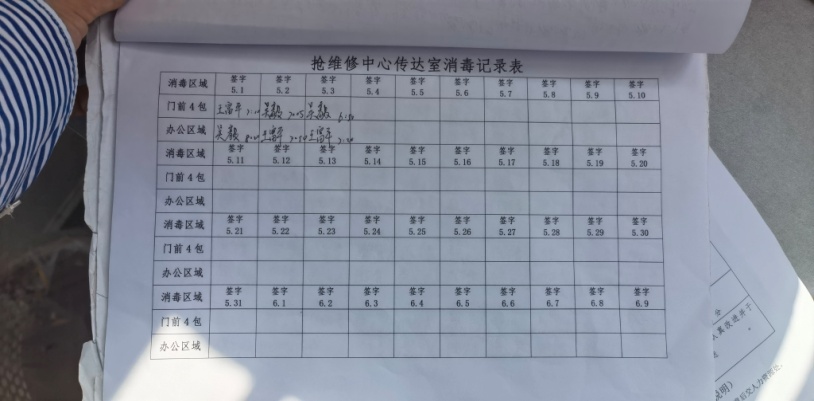 抢维修中心传达室消毒记录表
消毒区域 签字 5.1 签字 5.2 签字 5.3 签字 5.4 签字 5.5 签字 5.6 签字 5.7 签字 5.8 签字 5.9 签字 5.10
门前4包
办公区域
消毒区域 签字 5.11 签字 5.12 签字 5.13 签字 5.14 签字 5.15 签字 5.16 签字 5.17 签字 5.18 签字 5.19 签字 5.20
门前4包
办公区域
消毒区域 签字 5.21 签字 5.22 签字 5.23 签字 5.24 签字 5.25 签字 5.26 签字 5.27 签字 5.28 签字 5.29 签字 5.30
门前4包
办公区域
消毒区域 签字 5.31 签字 6.1 签字 6.2 签字 6.3 签字 6.4 签字 6.5 签字 6.6 签字 6.7 签字 6.8 签字 6.9
门前4包
办公区域